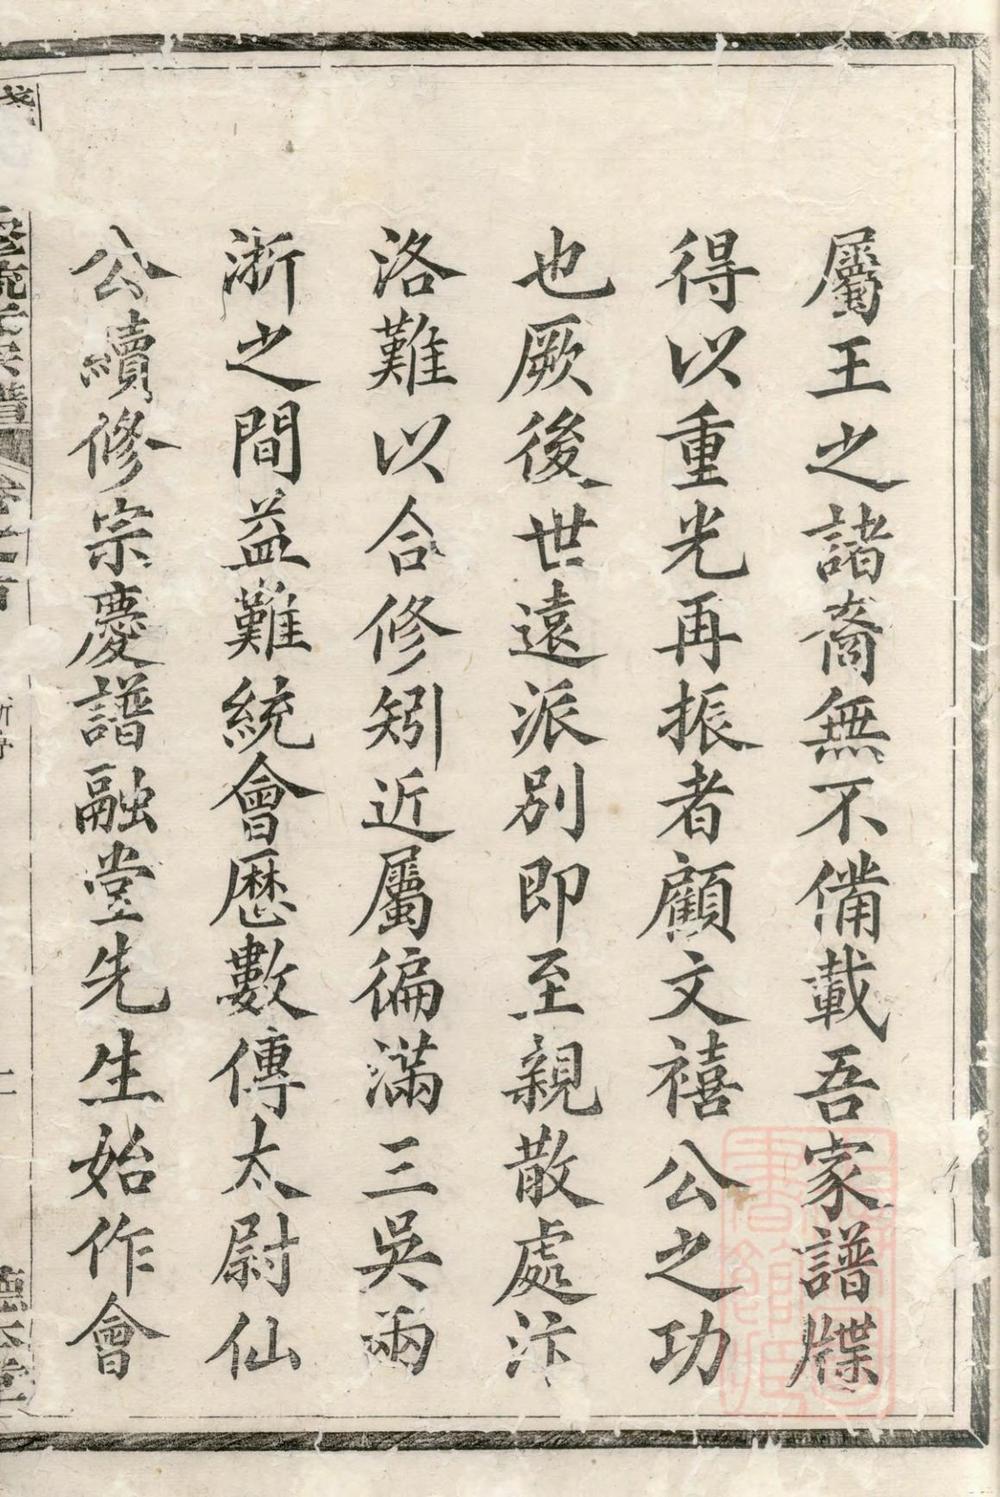 屬王之諸裔無不備載吾家譜牒
得以重光再振者顧文禧公之功
也厥後世遠派別即至親散處汴
洛難以合修矧近屬徧滿三吳兩
浙之間益難統會歷數傳太尉仙
公續修宗慶譜融堂先生始作會